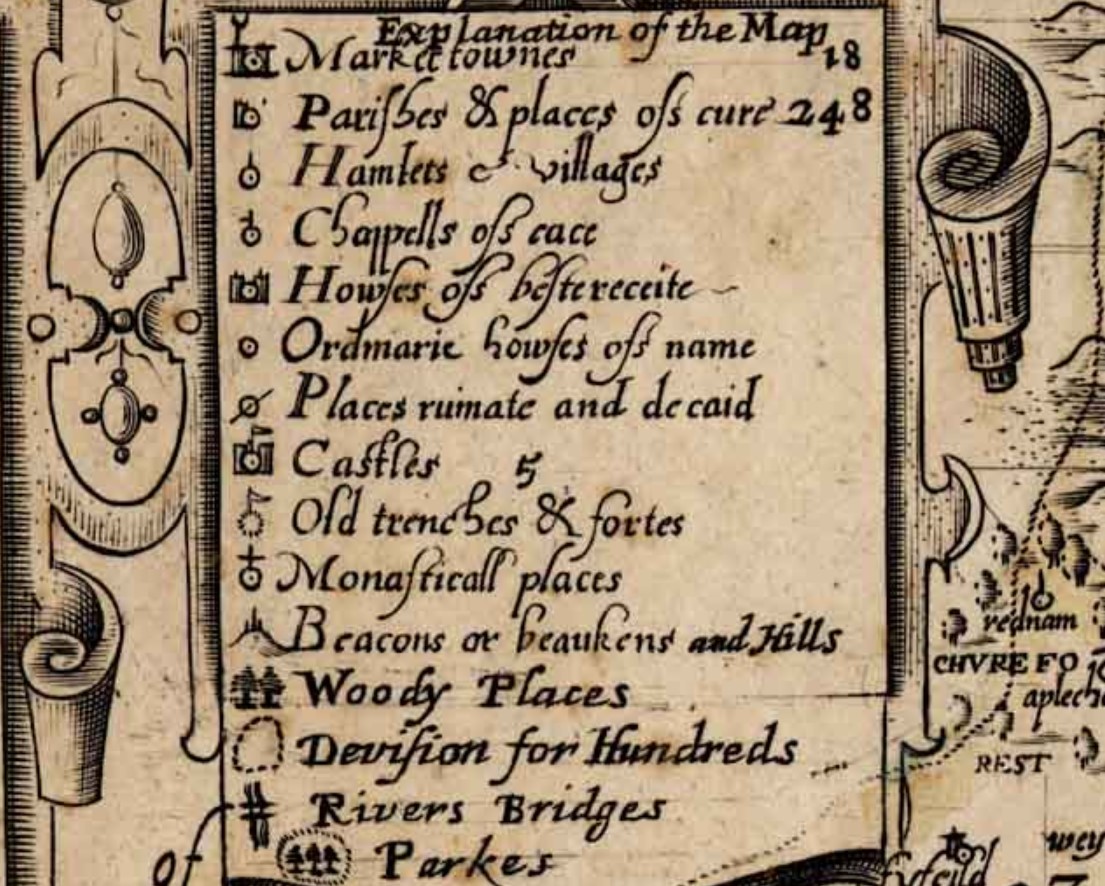 Explanation of the Map
Market townes 18
Pariſhes & places oſs cure 248
Hamlets & villages
Chappells oſs eace
Howſes oſs beſte receite
Ordinarie howſes oſs name
Places ruinate and decaid
Caſtles 5
Old trenches & fortes
Monaſticall places
Beacons or beaukens and Hills
Woody Places
Deviſion for Hundreds
Rivers Bridges
Parkes
of
rednam
CHVRE FO
REST
wey
fyfeild